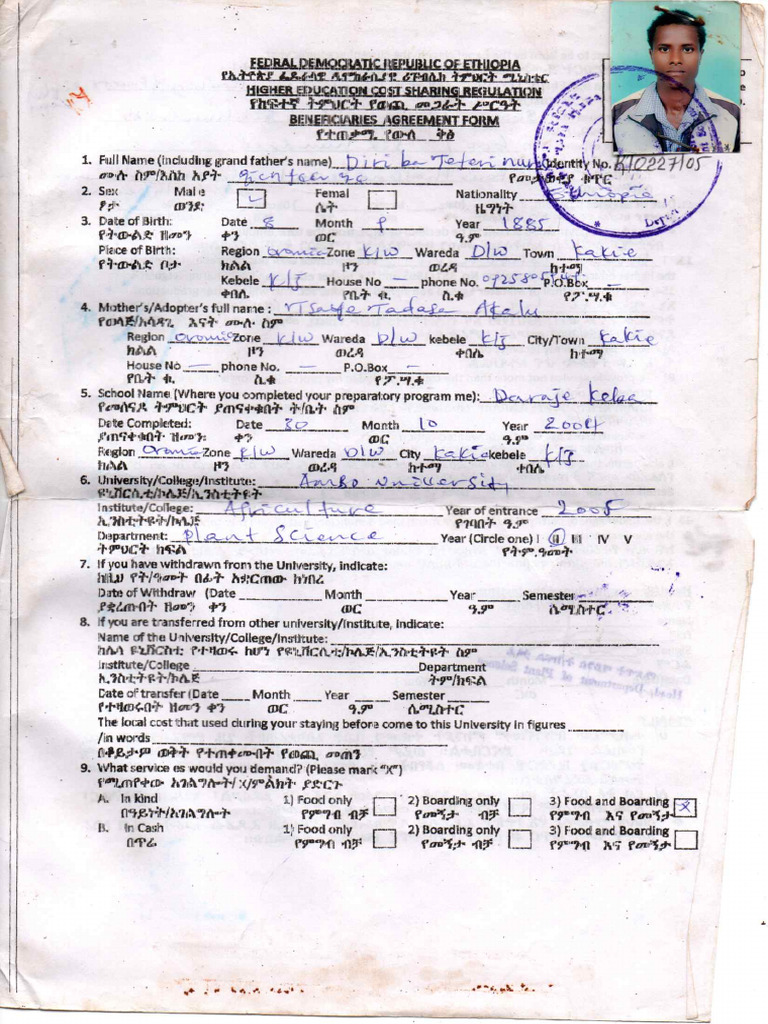 FEDRAL DEMOCRATIC REPUBLIC OF ETHIOPIA
የኢትዮጵያ ፌዴራላዊ ዲሞክራሲያዊ ሪፐብሊክ ትምህርት ሚኒስቴር
HIGHER EDUCATION COST SHARING REGULATION
የከፍተኛ ትምህርት የወጪ መጋራት ሥርዓት
BENEFICIARIES AGREEMENT FORM
የተጠቃሚ የውል ቅፅ
1. Full Name (including grand father's name) Diriba Teferi Identity No. R/0227/05
ሙሉ ስም/እስከ አያት የመታወቂያ ቁጥር
2. Sex Male Femal Nationality Ethiopia
ፆታ ወንድ ሴት ዜግነት
3. Date of Birth: Date 8 Month 9 Year 1885
የትውልድ ዘመን ቀን ወር ዓ.ም
Place of Birth: Region Oromia Zone K/W Wareda D/W Town Kakie
የትውልድ ቦታ ክልል ዞን ወረዳ ከተማ
Kebele K/J House No — phone No. P.O.Box —
ቀበሌ የቤት ቁ. ስ.ቁ የፖ.ሣ.ቁ
4. Mother's/Adopter's full name : Tadasa Akalu
የወላጅ/አሳዳጊ እናት ሙሉ ስም
Region Oromia Zone K/W Wareda D/W kebele K/J City/Town Kakie
ክልል ዞን ወረዳ ቀበሌ ከተማ
House No — phone No. — P.O.Box —
የቤት ቁ. ስ.ቁ የፖ.ሣ.ቁ
5. School Name (Where you completed your preparatory program me): Daraje Koba
የመሰናዶ ትምህርት ያጠናቀቁበት ት/ቤት ስም
Date Completed: Date 30 Month 10 Year 2004
ያጠናቀቁበት ዘመን: ቀን ወር ዓ.ም
Region Oromia Zone K/W Wareda D/W City Kakie kebele K/J
ክልል ዞን ወረዳ ከተማ ቀበሌ
6. University/College/Institute: Ambo University
ዩኒቨርሲቲ/ኮሌጅ/ኢንስቲትዩት
Institute/College: Agriculture Year of entrance 2005
ኢንስቲትዩት/ኮሌጅ የገባበት ዓ.ም
Department: Plant Science Year (Circle one) I II III IV V
ትምህርት ክፍል የት.ዓመት
7. If you have withdrawn from the University, indicate:
ከዚህ የት/ዓመት በፊት አቋርጠው ከነበረ
Date of Withdraw (Date Month Year Semester
ያቋረጡበት ዘመን ቀን ወር ዓ.ም ሴሚስተር
8. If you are transferred from other university/Institute, indicate:
Name of the University/College/Institute:
ከሌላ ዩኒቨርስቲ የተዛወሩ ከሆነ የዩኒቨርሲቲ/ኮሌጅ/ኢንስቲትዩት ስም
Institute/College Department
ኢንስቲትዩት/ኮሌጅ ትም/ክፍል
Date of transfer (Date Month Year Semester
የተዛወሩበት ዘመን ቀን ወር ዓ.ም ሴሚስተር
The local cost that used during your staying before come to this University in figures
/in words
በቆይታዎ ወቅት የተጠቀሙበት የወጪ መጠን
9. What service es would you demand? (Please mark "X")
የሚጠየቀው አገልግሎት/ X/ምልክት ያድርጉ
A. In kind 1) Food only 2) Boarding only 3) Food and Boarding X
በዓይነት/አገልግሎት የምግብ ብቻ የመኝታ ብቻ የምግብ እና የመኝታ
B. In Cash 1) Food only 2) Boarding only 3) Food and Boarding
በጥሬ የምግብ ብቻ የመኝታ ብቻ የምግብ እና የመኝታ